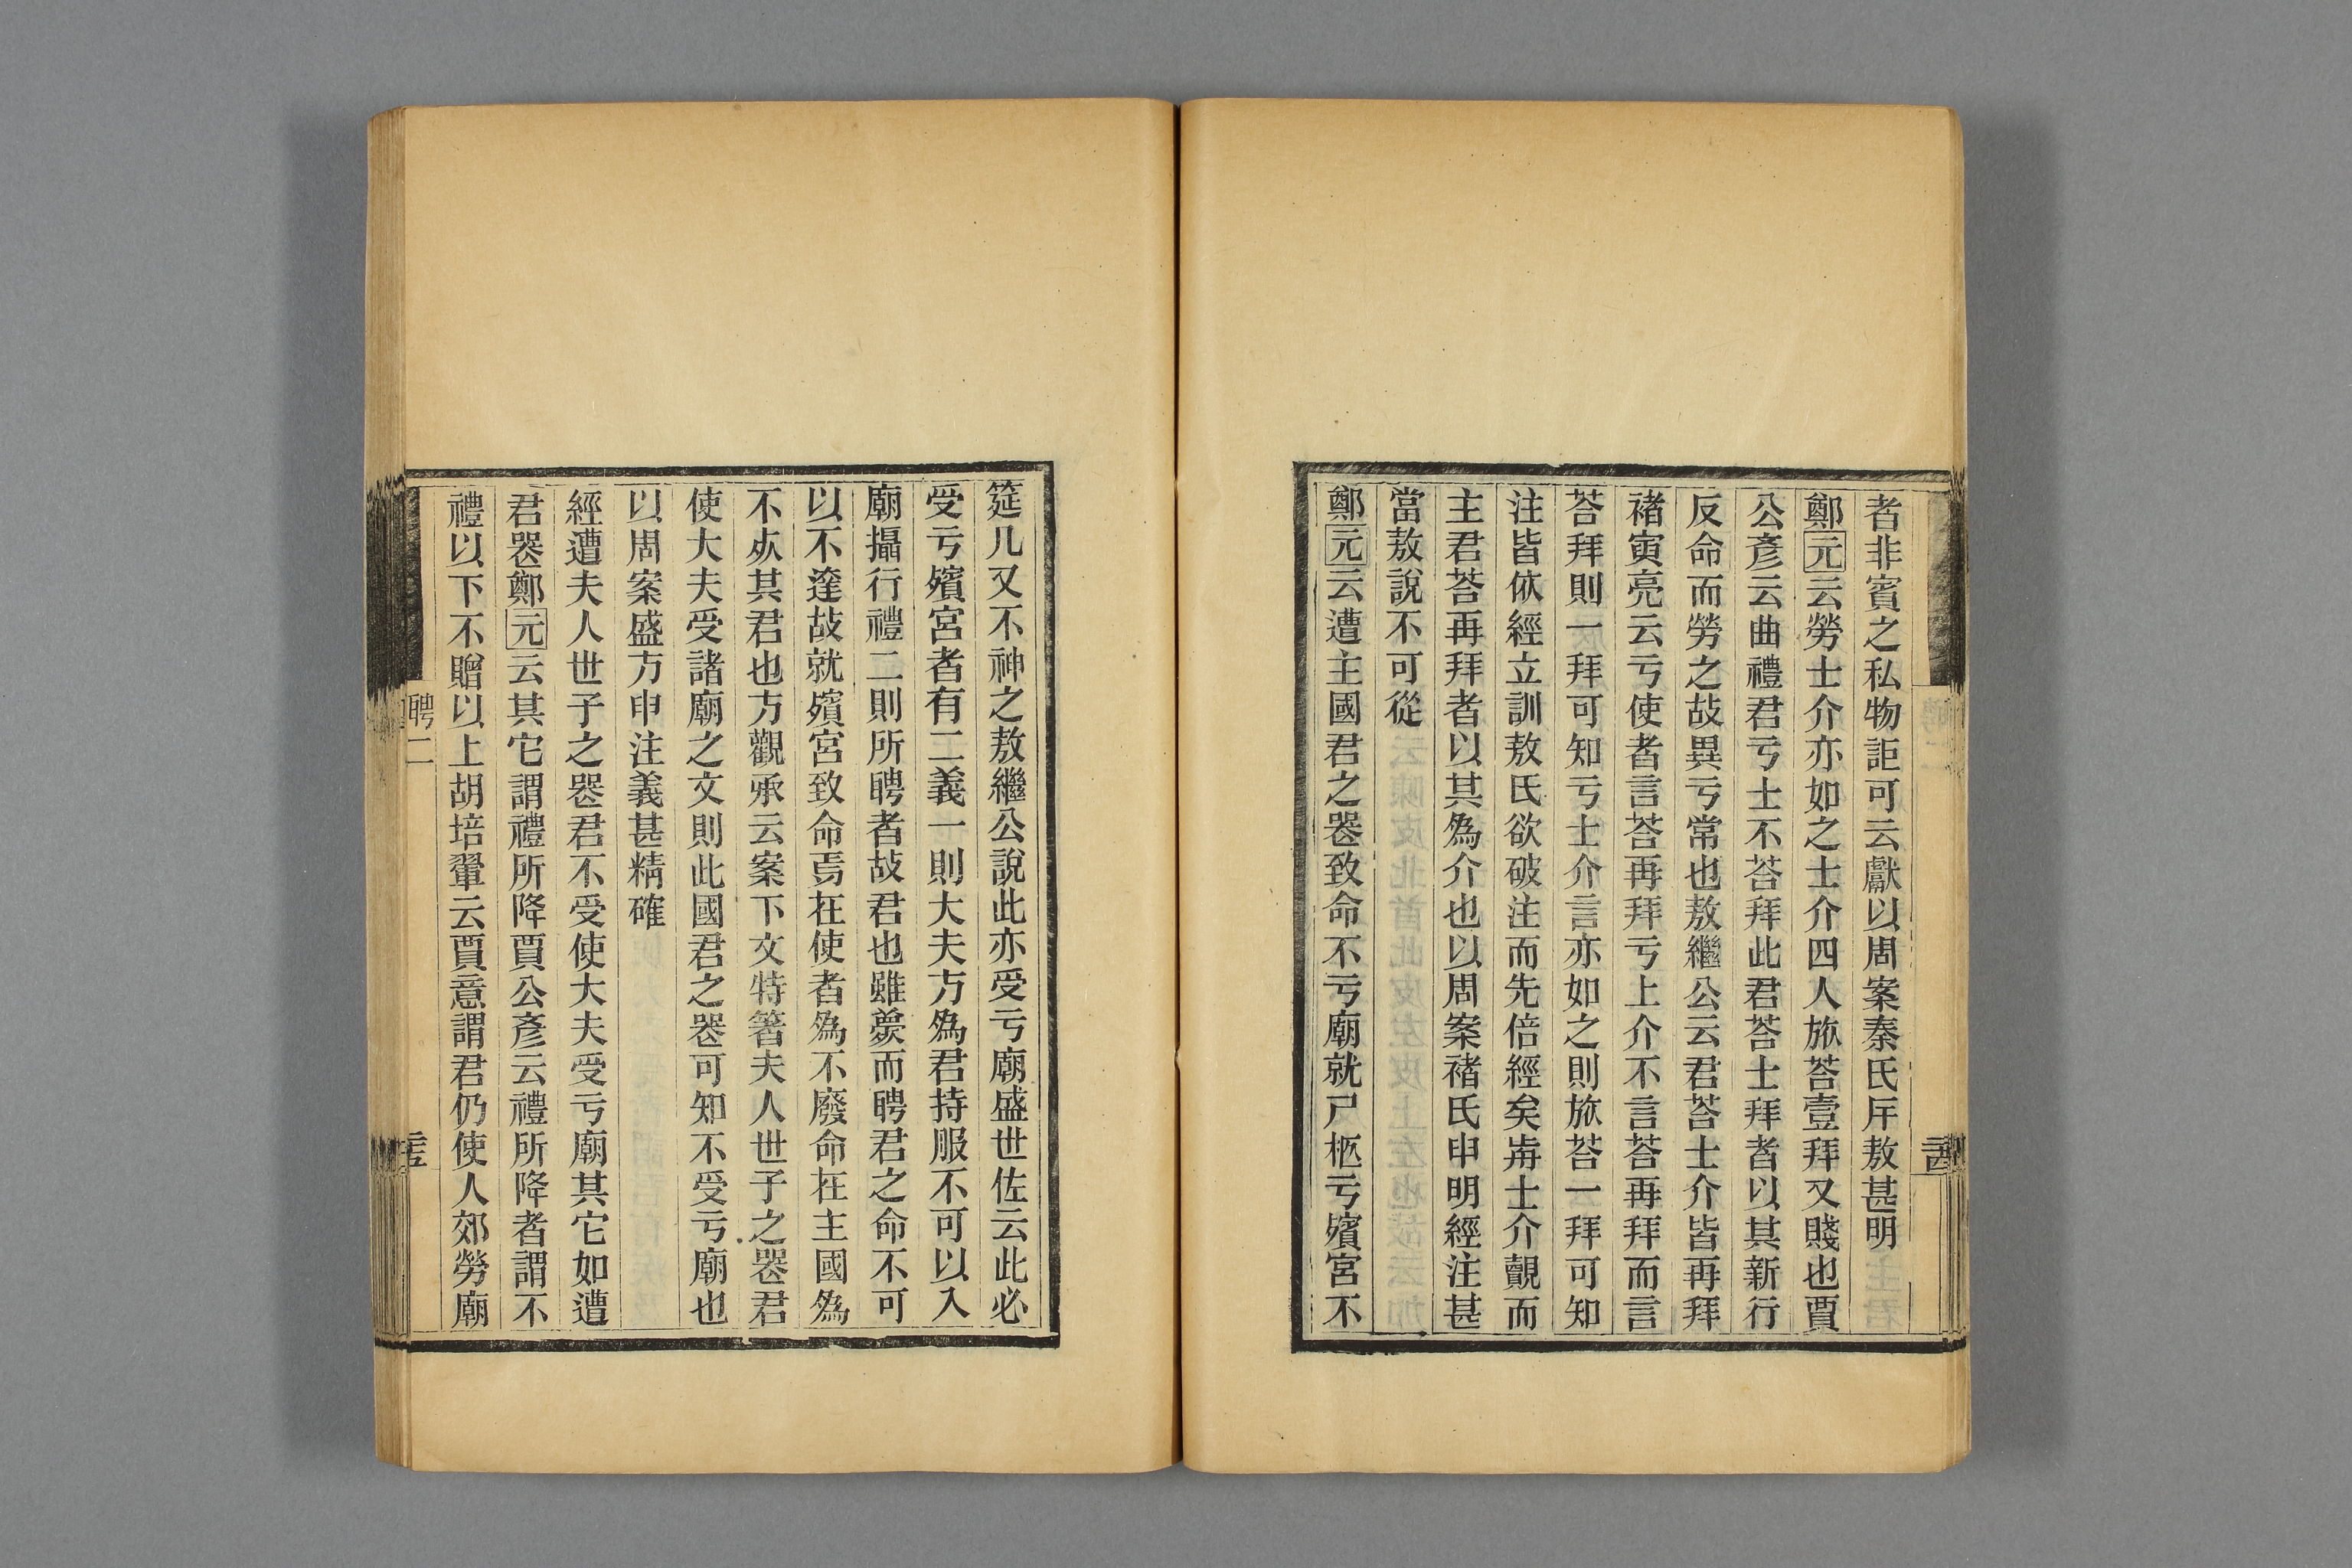 者非賓之私物詎可云獻以周案秦氏斥敖甚明
鄭元云勞士介亦如之士介四人旅荅壹拜又賤也賈
公彥云曲禮君亏士不荅拜此君荅士拜者以其新行
反命而勞之故異亏常也敖繼公云君荅士介皆再拜
褚寅亮云亏使者言荅再拜亏上介不言荅再拜而言
荅拜則一拜可知亏士介言亦如之則旅荅一拜可知
注皆依經立訓敖氏欲破注而先倍經矣歬士介觀而
主君荅再拜者以其爲介也以周案褚氏申明經注甚
當敖說不可從
鄭元云遭主國君之喪致命不亏廟就尸柩亏殯宮不
筵几又不神之敖繼公說此亦受亏廟盛世佐云此必
受亏殯宮者有二義一則大夫方爲君持服不可以入
廟攝行禮二則所聘者故君也雖薨而聘君之命不可
以不達故就殯宮致命焉在使者爲不廢命在主國爲
不死其君也方觀承云案下文特箸夫人世子之喪君
使大夫受諸廟之文則此國君之喪可知不受亏廟也
以周案盛方申注義甚精確
經遭夫人世子之喪君不受使大夫受亏廟其它如遭
君喪鄭元云其它謂禮所降賈公彥云禮所降者謂不
禮以下不贈以上胡培翬云賈意謂君仍使人郊勞廟
聘二